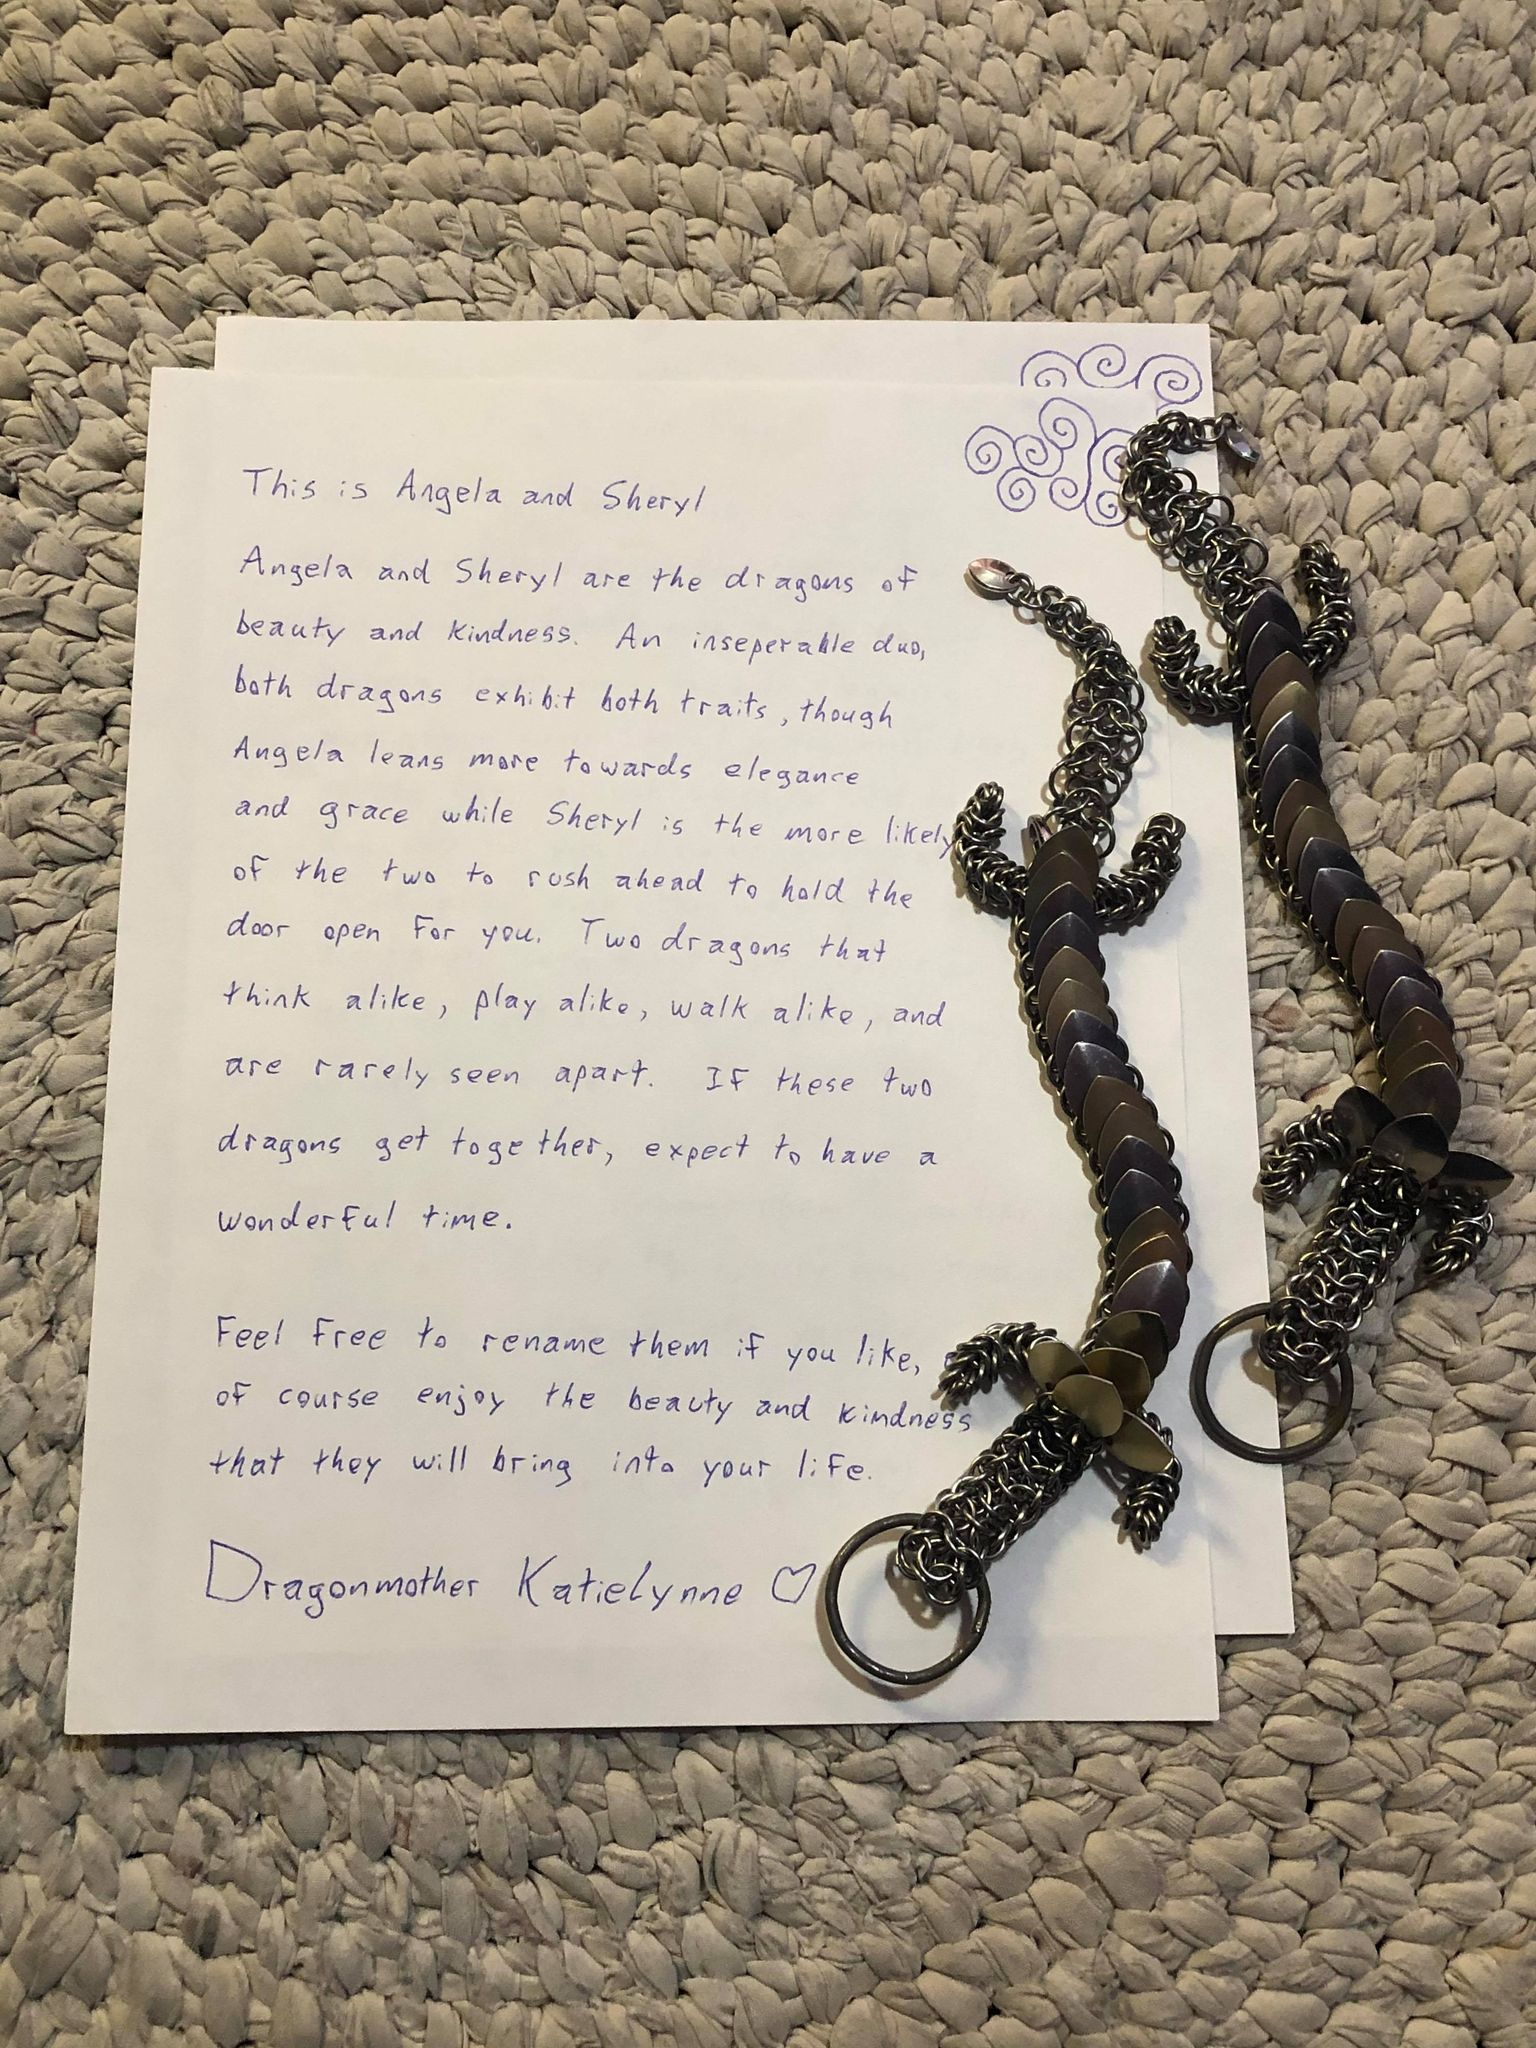 This is Angela and Sheryl
Angela and Sheryl are the dragons of
beauty and kindness. An inseperable duo,
both dragons exhibit both traits, though
Angela leans more towards elegance
and grace while Sheryl is the more likely
of the two to rush ahead to hold the
door open for you. Two dragons that
think alike, play alike, walk alike, and
are rarely seen apart. If these two
dragons get together, expect to have a
wonderful time.
Feel free to rename them if you like,
of course enjoy the beauty and kindness
that they will bring into your life.
Dragonmother Katielynne ♡